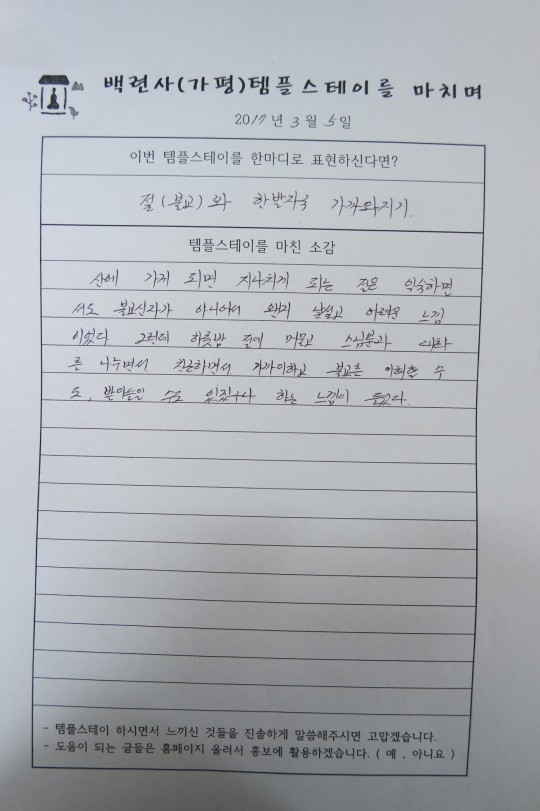 백련사(가평)템플스테이를 마치며
2017년 3월 5일
이번 템플스테이를 한마디로 표현하신다면?
절(불교)와 한발자국 가까워지기.
템플스테이를 마친 소감
산에 가게 되면 지나치게 되는 절은 익숙하면
서도 불교신자가 아니어서 왠지 낯설고 어려운 느낌
이었다. 그런데 하룻밤 절에 머물고 스님분과 대화
를 나누면서 친근하면서 가까이하고 불교를 이해할 수
도, 받아들일 수도 있겠구나 하는 느낌이 들었다.
- 템플스테이 하시면서 느끼신 것들을 진솔하게 말씀해주시면 고맙겠습니다.
- 도움이 되는 글들은 홈페이지 올려서 홍보에 활용하겠습니다. ( 예 , 아니요 )